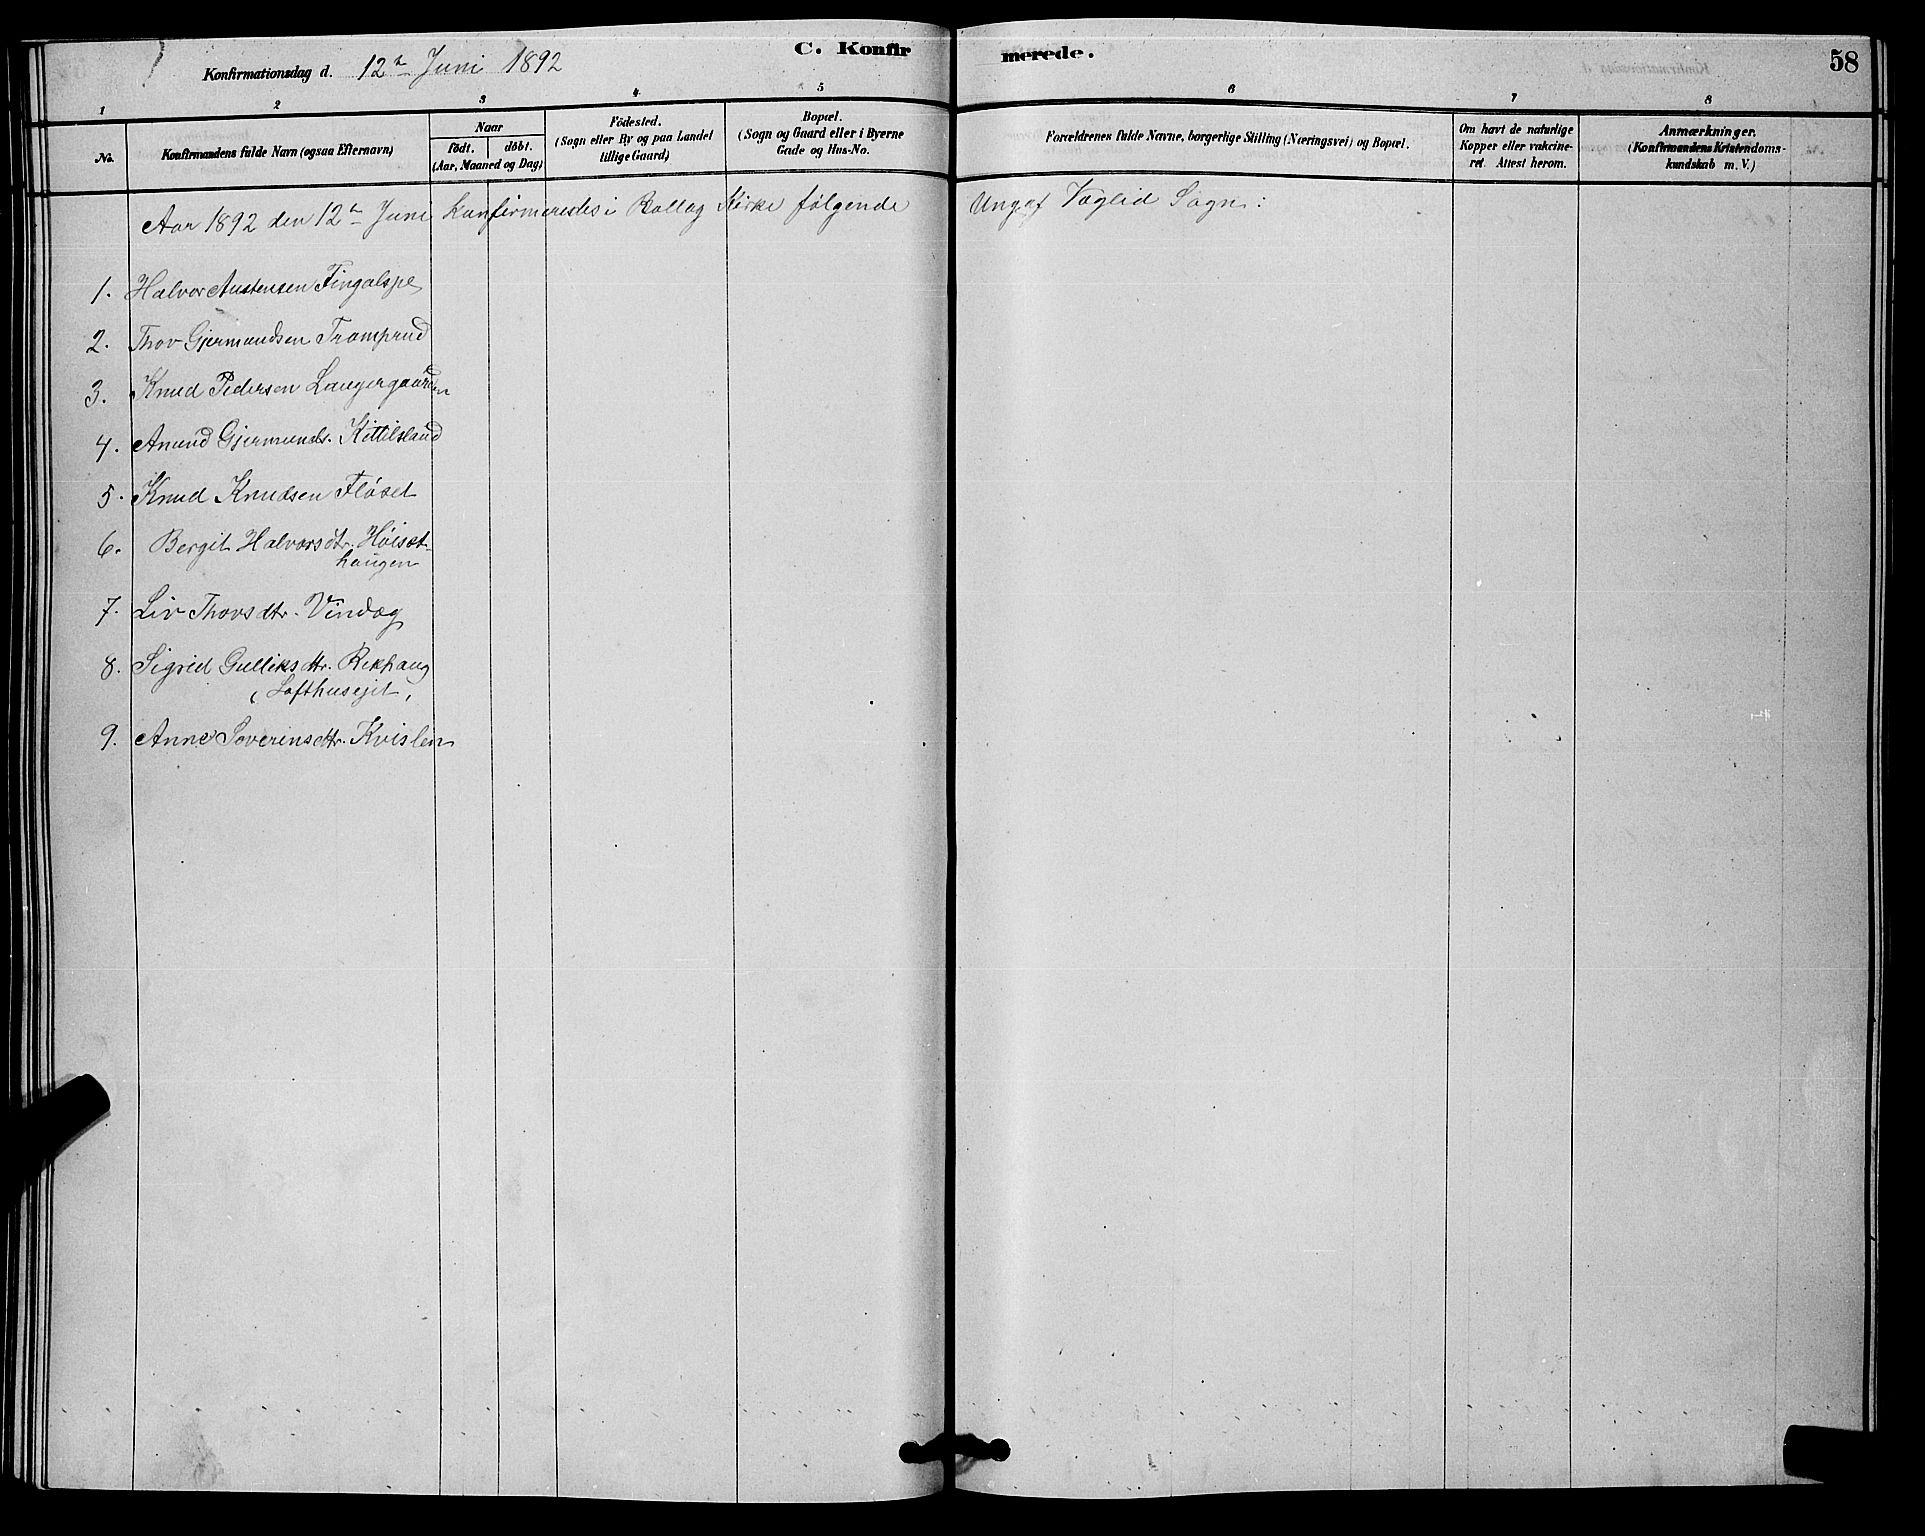 C. Konfirmerede.
58
Konfirmationsdag d. 12te Juni 1892
1 2 3 4 5 6 7 8
No.
Konfirmandens fulde Navn (ogsaa Efternavn)
Naar
födt. döbt.
(Aar, Maaned og Dag)
Födested.
(Sogn eller By og paa Landet
tillige Gaard)
Bopæl.
(Sogn og Gaard eller i Byerne
Gade og Hus-No.
Forældrenes fulde Navne, borgerlige Stilling (Næringsvei) og Bopæl.
Om havt de naturlige
Kopper eller vakcine-
ret. Attest herom.
Anmærkninger.
(Konfirmandens Kristendoms-
kundskab m. V.)
Aar 1892 den 12te Juni konfirmeredes i Rollag Kirke følgende Unge af Væglid Sogn:
1. Halvor Austensen Fingalspl
2. Thov Gjermundsen Tramprud
3. Knud Pedersen Laugergaarden
4. Anund Gjermunds. Kittilsland
5. Knud Knudsen Fløset
6. Bergit Halvorsdtr. Høiset-
haugen
7. Liv Thovsdtr. Vindeg
8. Sigrid Gulliksdtr. Rekhaug
(Lofthusejet,
9. Anne Severinsdtr. Kvislen